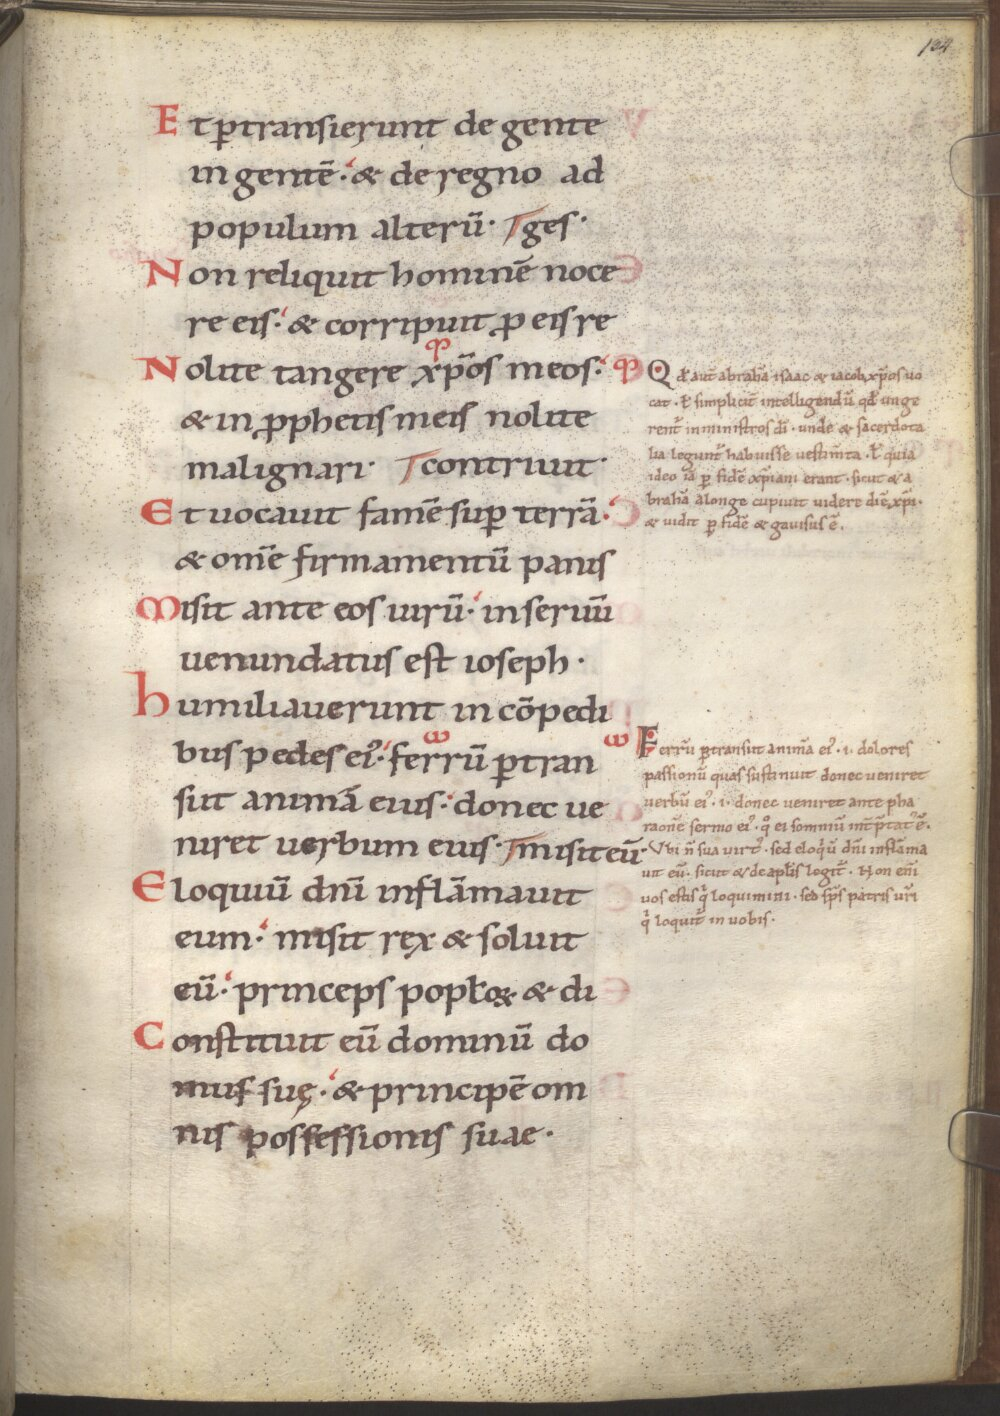 134
Et p̱transierunt de gente
in gentē· & de regno ad
populum alterū· ges·
Non reliquit hominē noce
re eis· & corripuit ꝓ eis re
Nolite tangere xp̄os meos·
& in ꝓphetis meis nolite
malignari· contriuit·
Et uocauit famē suꝑ terrā·
& om̄e firmamentū panis
Misit ante eos uirū· in seruū
uenundatus est ioseph·
Humiliauerunt in cōpedi
bus pedes ei᾿· ferrū ꝑtran
siit animā eius· donec ue
niret uerbum eius· misit eū·
Eloquiū dn̄i inflāmauit
eum· misit rex & soluit
eū· princeps popłoꝝ & di
Constituit eū dominū do
mus suę· & principē om
nis possessionis suae·
Qd̄ aut̄ abrahā isaac & iacob xp̄os uo
cat· ł simplicit̄ intelligendū qd̄ unge
rent̄ in ministros dī· unde & sacerdota
lia legunt̄ habuisse uestim̄ta· ł quia
ideo iā ꝑ fidē xp̄iani erant· sicut & a
brahā a longe cupiuit uidere diē xp̄i·
& uidit ꝑ fidē & gauisus ē·
Ferrū ꝑtransiit animā ei᾿· i· dolores
passionū quas sustinuit donec ueniret
uerbū ei᾿· i· donec ueniret ante pha
raonē sermo ei᾿· qͦ ei somniū int̄p̄tat᾿ ē·
Vbi n̄ sua uirt᾿· sed eloqͥū dn̄i inflāma
uit eū· sicut & de ap̄lis legit̄· Non eni̅
uos estis qͥ loquimini· sed sp̄s patris ur̄i
qͥ loquit̄ in uobis·